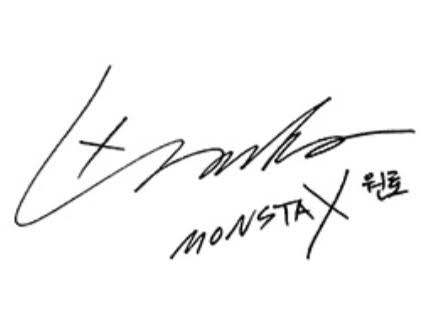 MONSTA X 원호